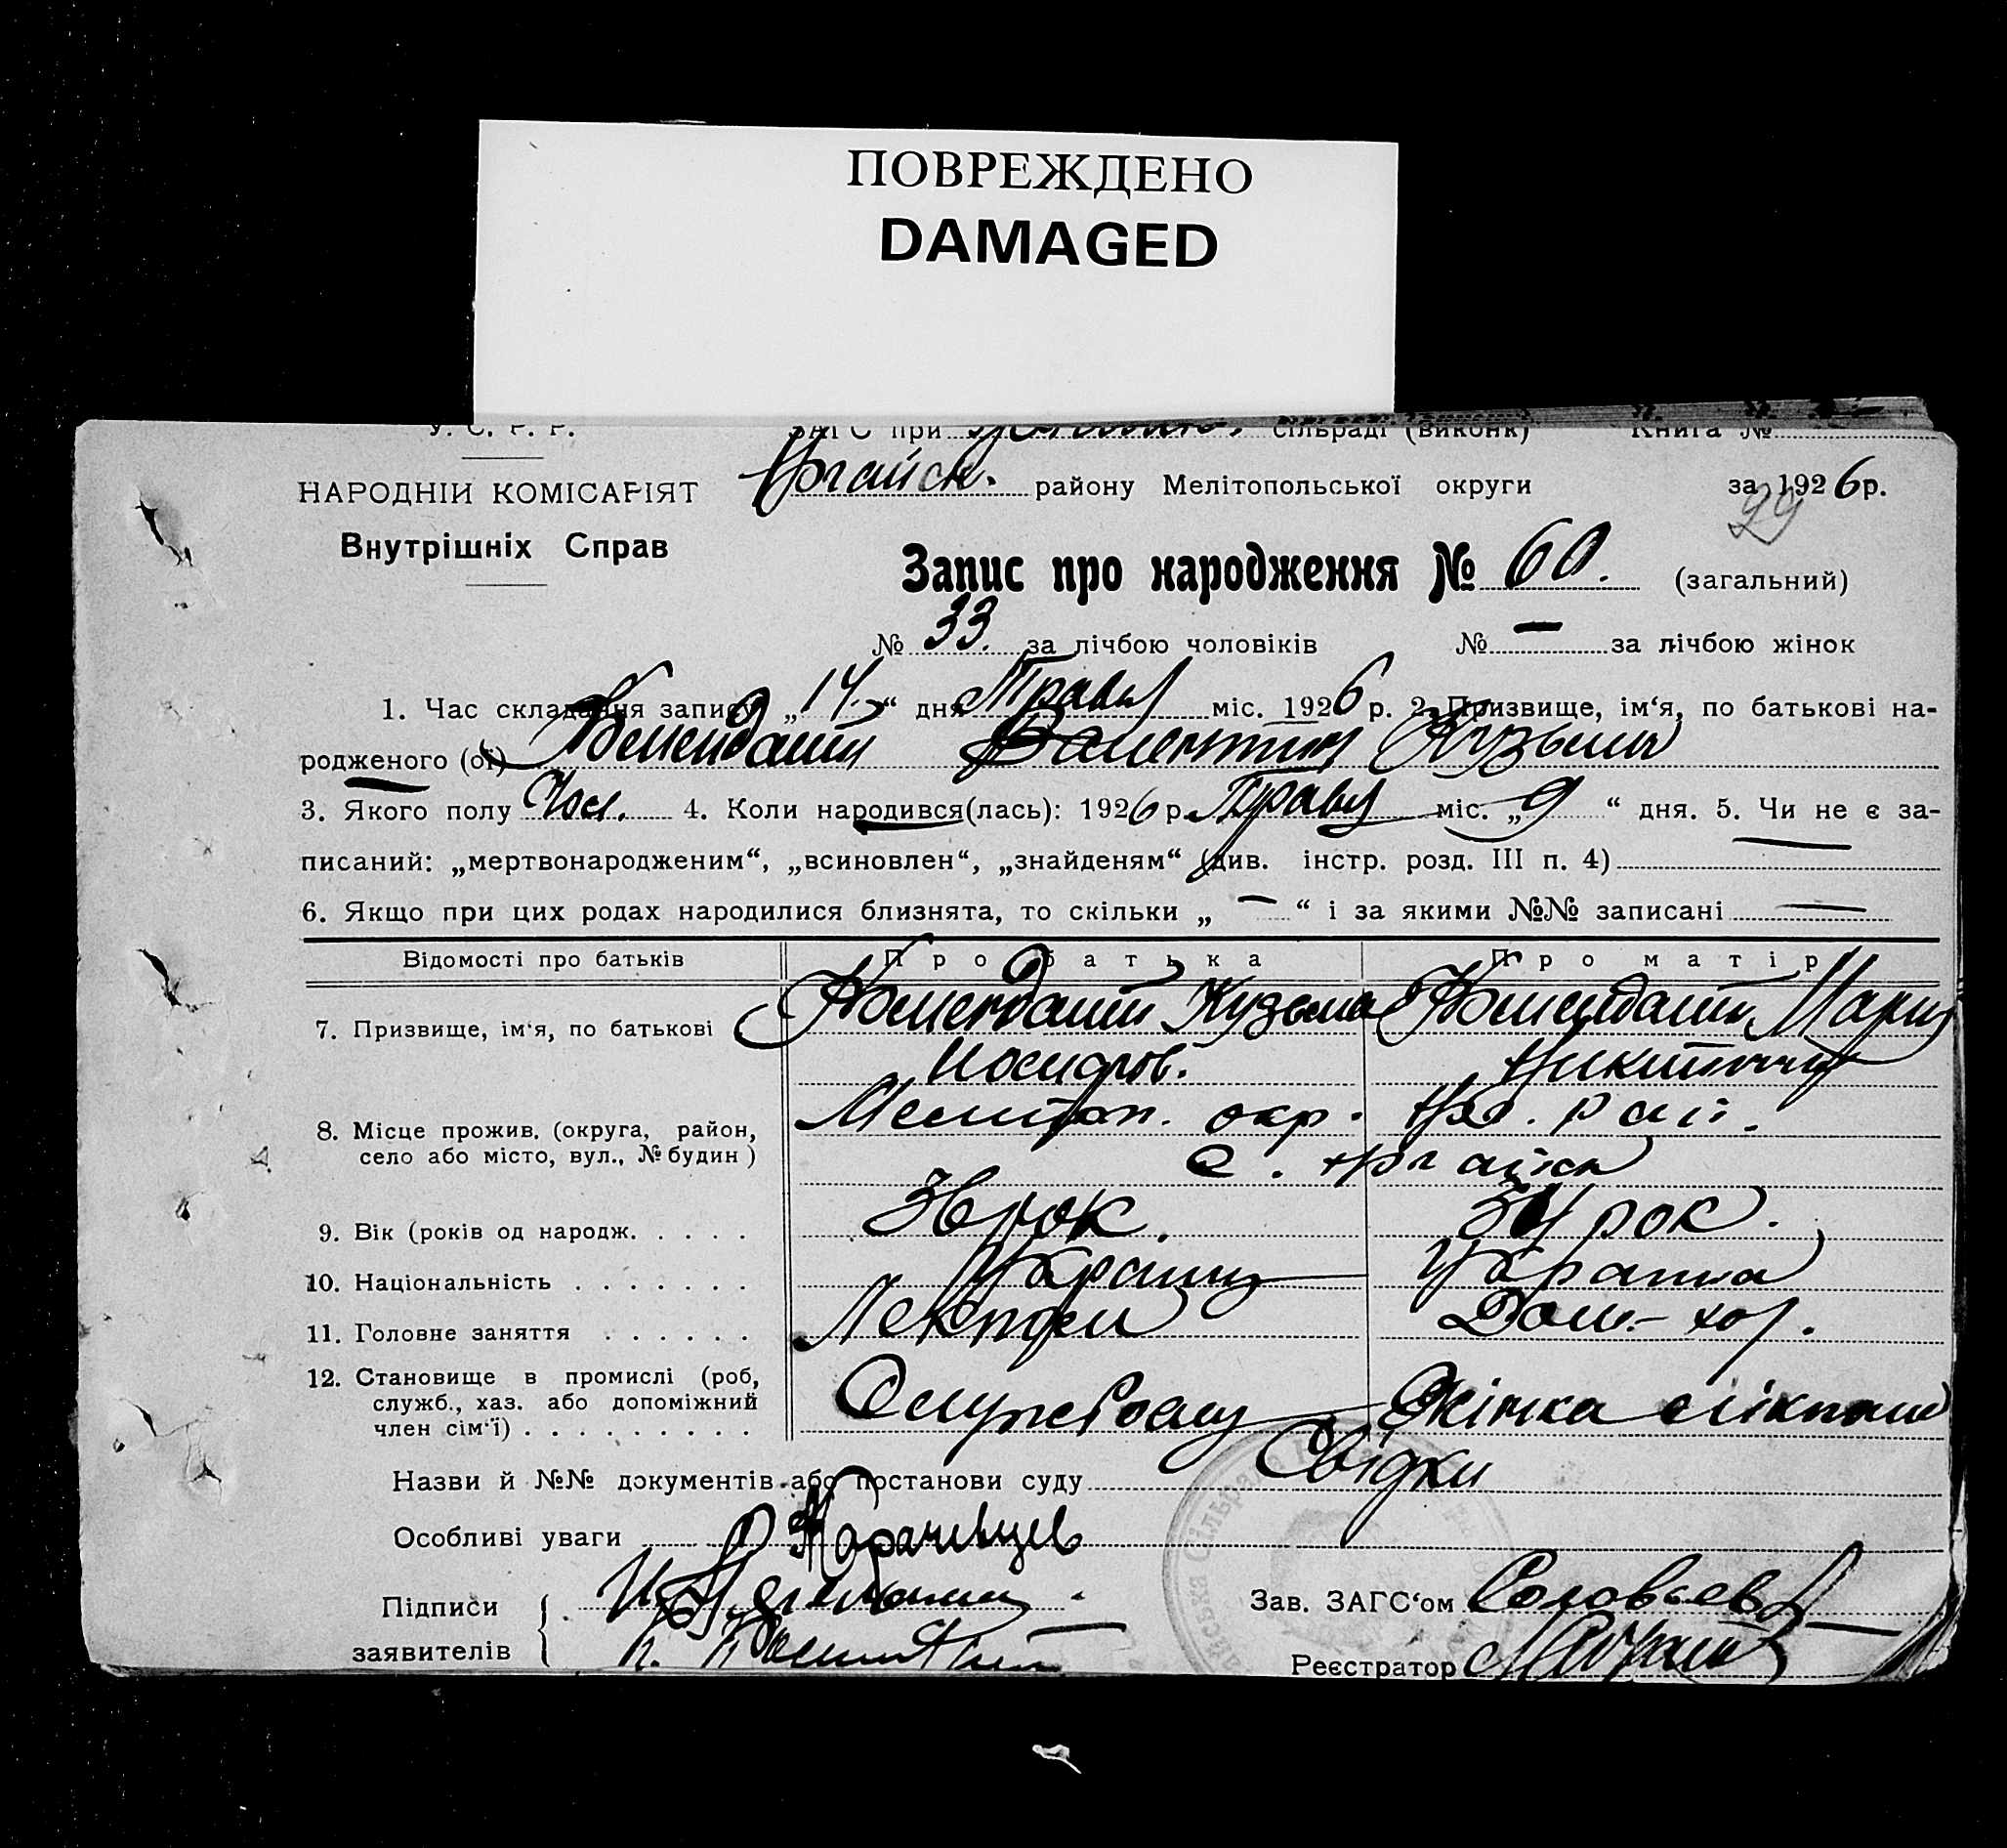 ПОВРЕЖДЕНО
DAMAGED
У. С. Р. Р.
ЗАГС при сільраді (виконк) Книга №
НАРОДНІЙ КОМІСАРІЯТ
Внутрішніх Справ
району Мелітопольської округи за 1926 р.
29
Запис про народження № 60. (загальний)
№ 33. за лічбою чоловіків № — за лічбою жінок
1. Час складання запису „14" дня Травня міс. 1926 р. 2. Призвище, ім'я, по батькові на-
родженого (ої) Комендант Валентин Кузьмич
3. Якого полу Чол. 4. Коли народився(лась): 1926 р. Травня міс. „9" дня. 5. Чи не є за-
писаний: „мертвонародженим“, „всиновлен“, „знайденям“ (див. інстр. розд. III п. 4)
6. Якщо при цих родах народилися близнята, то скільки „—“ і за якими №№ записані —
Відомості про батьків Про батька Про матір
7. Призвище, ім'я, по батькові Комендант Кузьма Комендант Мария
Иосифов. Никитична
8. Місце прожив. (округа, район, Мелітоп. окр. рай.
село або місто, вул., № будин) с.
9. Вік (років од народж. 36 рок. 34 рок.
10. Національність
11. Головне заняття Лекпом Дом.-хоз.
12. Становище в промислі (роб,
служб., хаз. або допоміжний Жінка
член сім'ї)
Назви й №№ документів або постанови суду Свідки
Особливі уваги
Підписи Зав. ЗАГС'ом Соловьев
заявителів Реєстратор